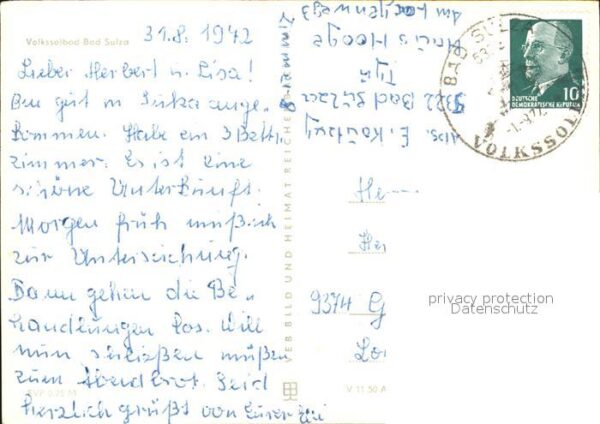 Volkssolbad Bad Sulza
31.8. 1972
Lieber Herbert u. Lisa!
Bin gut in Sulza ange-
kommen. Habe ein 3 Bett-
zimmer. Es ist eine
schöne Unterkunft.
Morgen früh muß ich
zur Untersuchung.
Dann gehen die Be-
handlungen los. Will
nun schließen müßen
zum Abendbrot. Seid
herzlich grüßt von Eurer
EVP 0,25 M
VEB BILD UND HEIMAT REICHENBACH
V 11 50 A
Abs. E.
5322 Bad Sulza
Haus Hooge
Am
BAD SULZA
VOLKSSOL
DEUTSCHE
DEMOKRATISCHE REPUBLIK
10
9374 G
privacy protection
Datenschutz